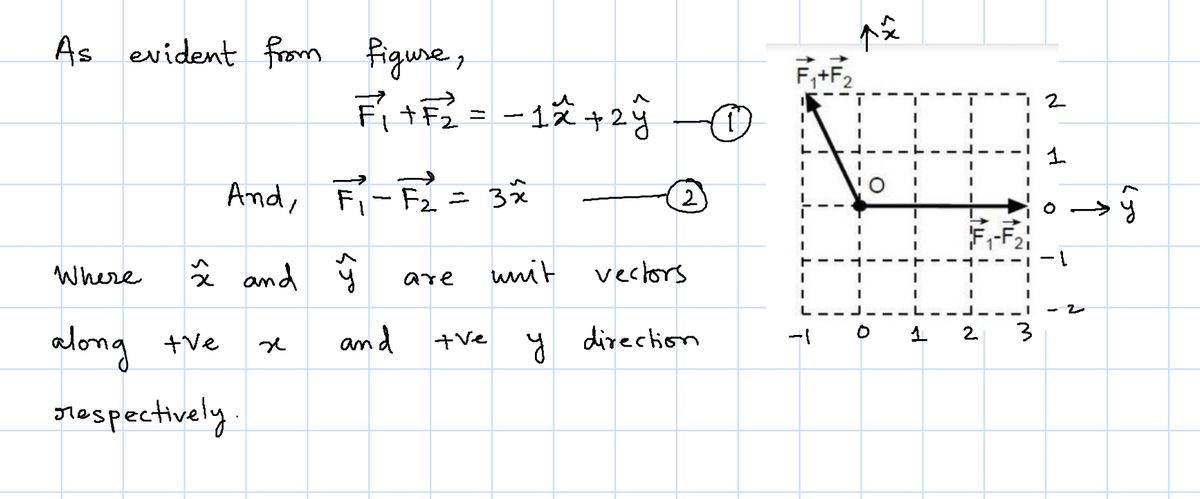 As evident from figure,
F₁ + F₂ = -1x̂ + 2ŷ — ①
And, F₁ - F₂ = 3x̂ — ②
Where x̂ and ŷ are unit vectors
along +ve x and +ve y direction
respectively.
x̂
F₁+F₂
2
1
O
0 → ŷ
F₁-F₂
-1
-2
-1 0 1 2 3